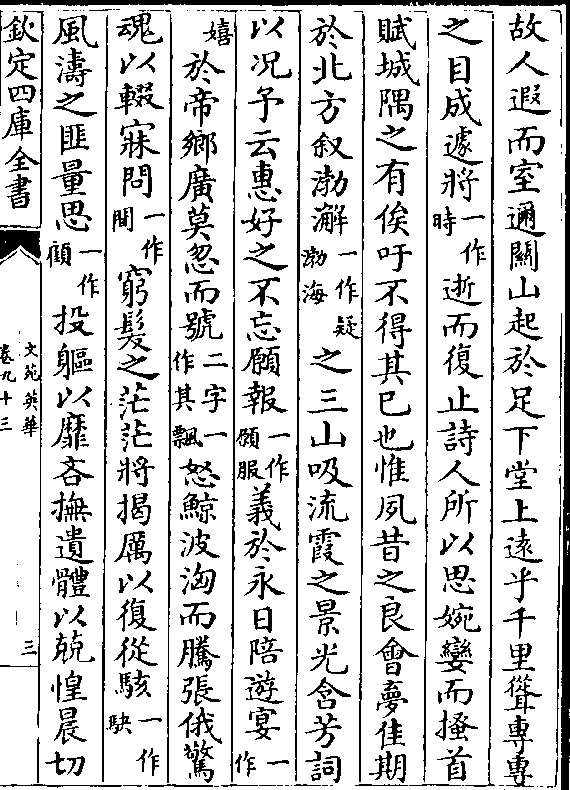 故人遐而室邇關山起於足下堂上遠乎千里聳專專
之目成遽將一作時逝而復止詩人所以思婉孌而搔首
賦城隅之有俟吁不得其已也惟夙昔之良會夢佳期
於北方叙渤澥一作疑渤海之三山吸流霞之景光含芳詞
以况予云惠好之不忘願報一作願服義於永日陪遊宴一作
嬉於帝鄉廣莫忽而號二字一作其飄怒鯨波洶而騰張俄驚
魂以輟寐問一作間窮髮之茫茫將揭厲以復從駭一作駃
風濤之匪量思一作顧投軀以靡吝撫遺體以兢惶晨切
欽定四庫全書
文苑英華
卷九十三
三